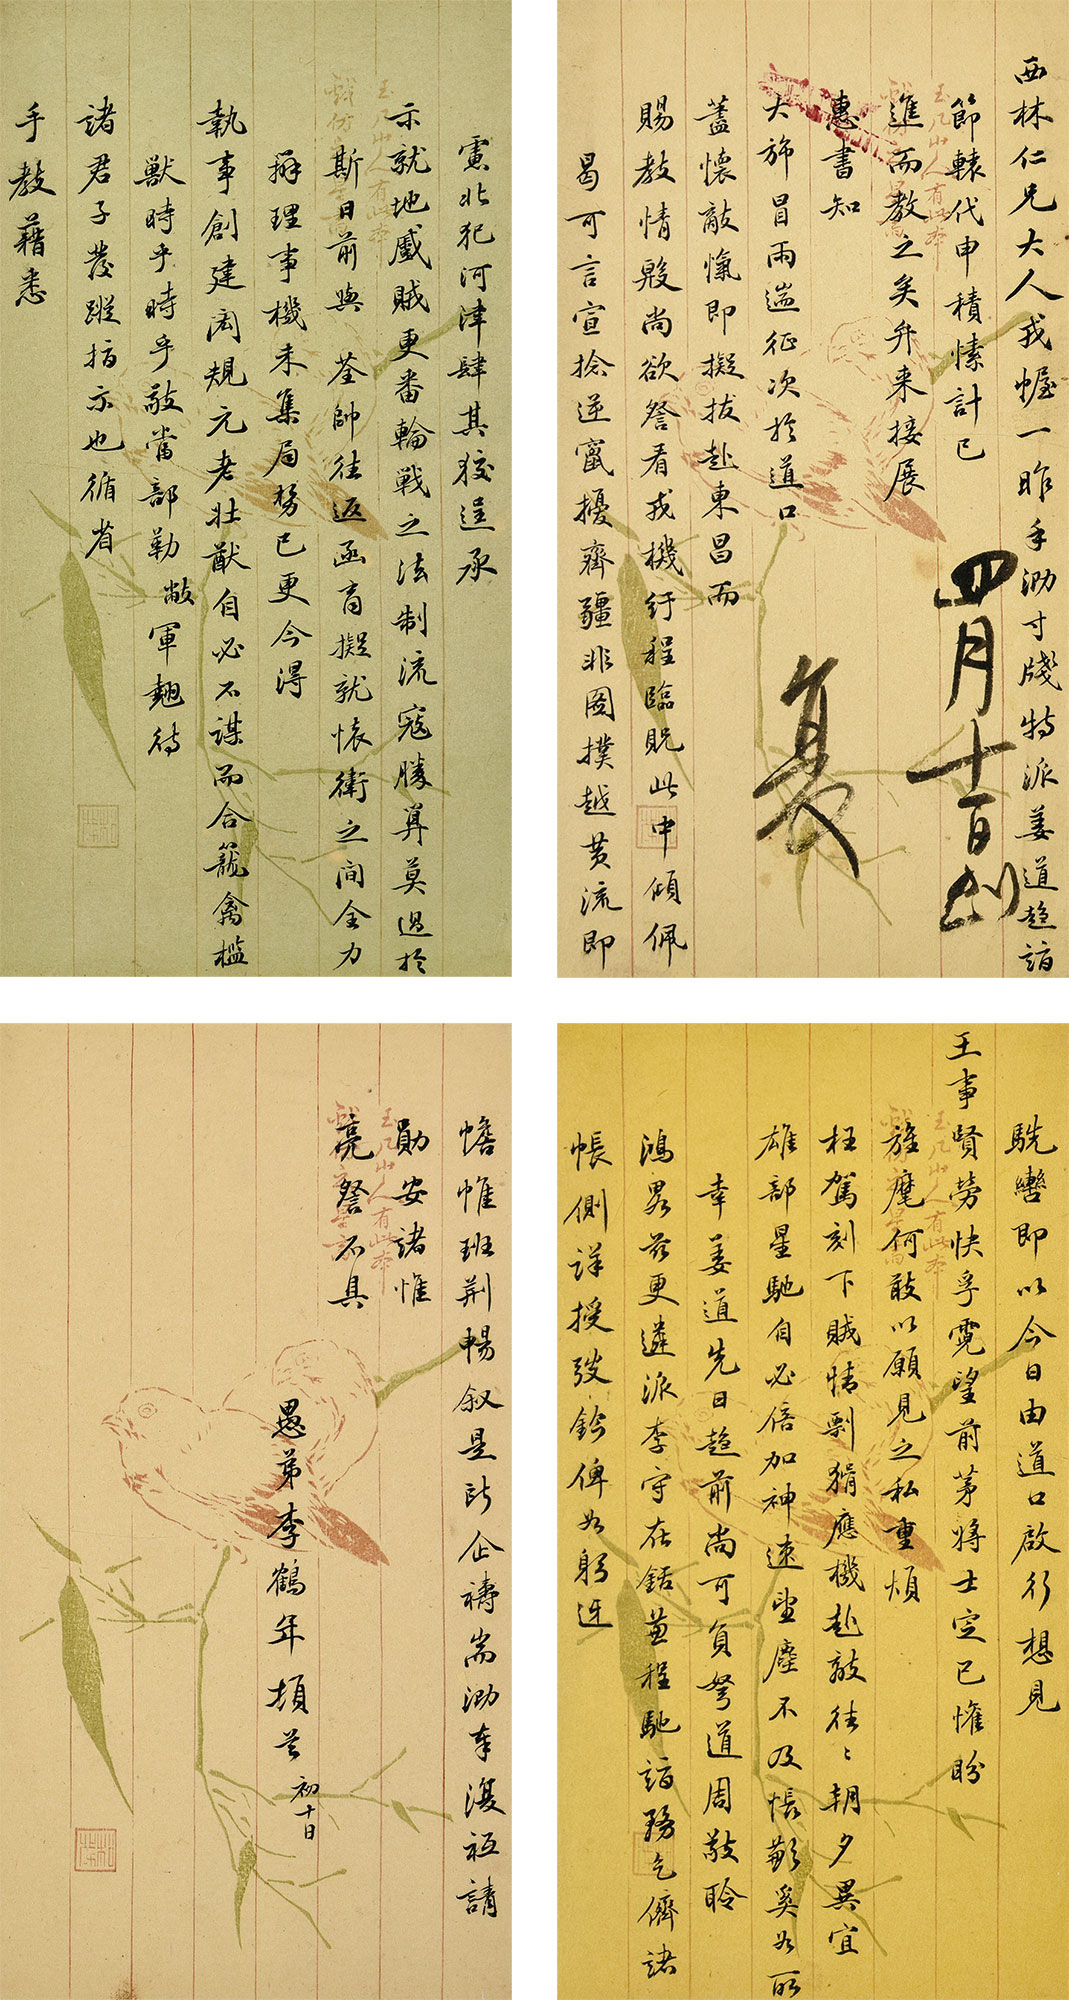 西林仁兄大人戎幄一昨手泐寸牋特派姜道趋詣
節轅代申積愫計已
進而教之矣弁来接展
惠書知
大斾冒雨遄征次於道口
藎懷敵愾即擬拔赴東昌而
賜教情殷尚欲詧看戎機紆程臨貺此中傾佩
曷可言宣捻逆竄擾齊疆非圖撲越黄流即
四月十一日到
复
玉几山人有此本
慮北犯河津肆其狡逞承
示就地蹙賊更番輪戰之法制流寇勝算莫過於
斯日前與 荃帥往返函商擬就懷衛之间全力
辦理事機未集局势已更今得
執事創建閎規元老壯猷自必不謀而合籠禽檻
獸時乎時乎敬當部勒敝軍翹待
諸君子發蹤指示也循省
手教藉悉
玉几山人有此本
駪轡即以今日由道口啟行想見
王事賢勞快孚霓望前茅將士定已懽盼
旌麾何敢以願見之私重煩
枉駕刻下賊情剽猾應機赴敵往〻朝夕異宜
雄部星馳自必倍加神速望塵不及悵歉奚如所
幸姜道先日趋前尚可負弩道周敬聆
鴻畧兹更遴派李守在銛兼程馳詣務乞儕諸
帳側詳授弢鈐俾如躬迓
玉几山人有此本
幨帷班荆暢叙是所企禱耑泐奉復祗請
勛安諸惟
亮詧不具
愚弟李鶴年頓首 初十日
玉几山人有此本